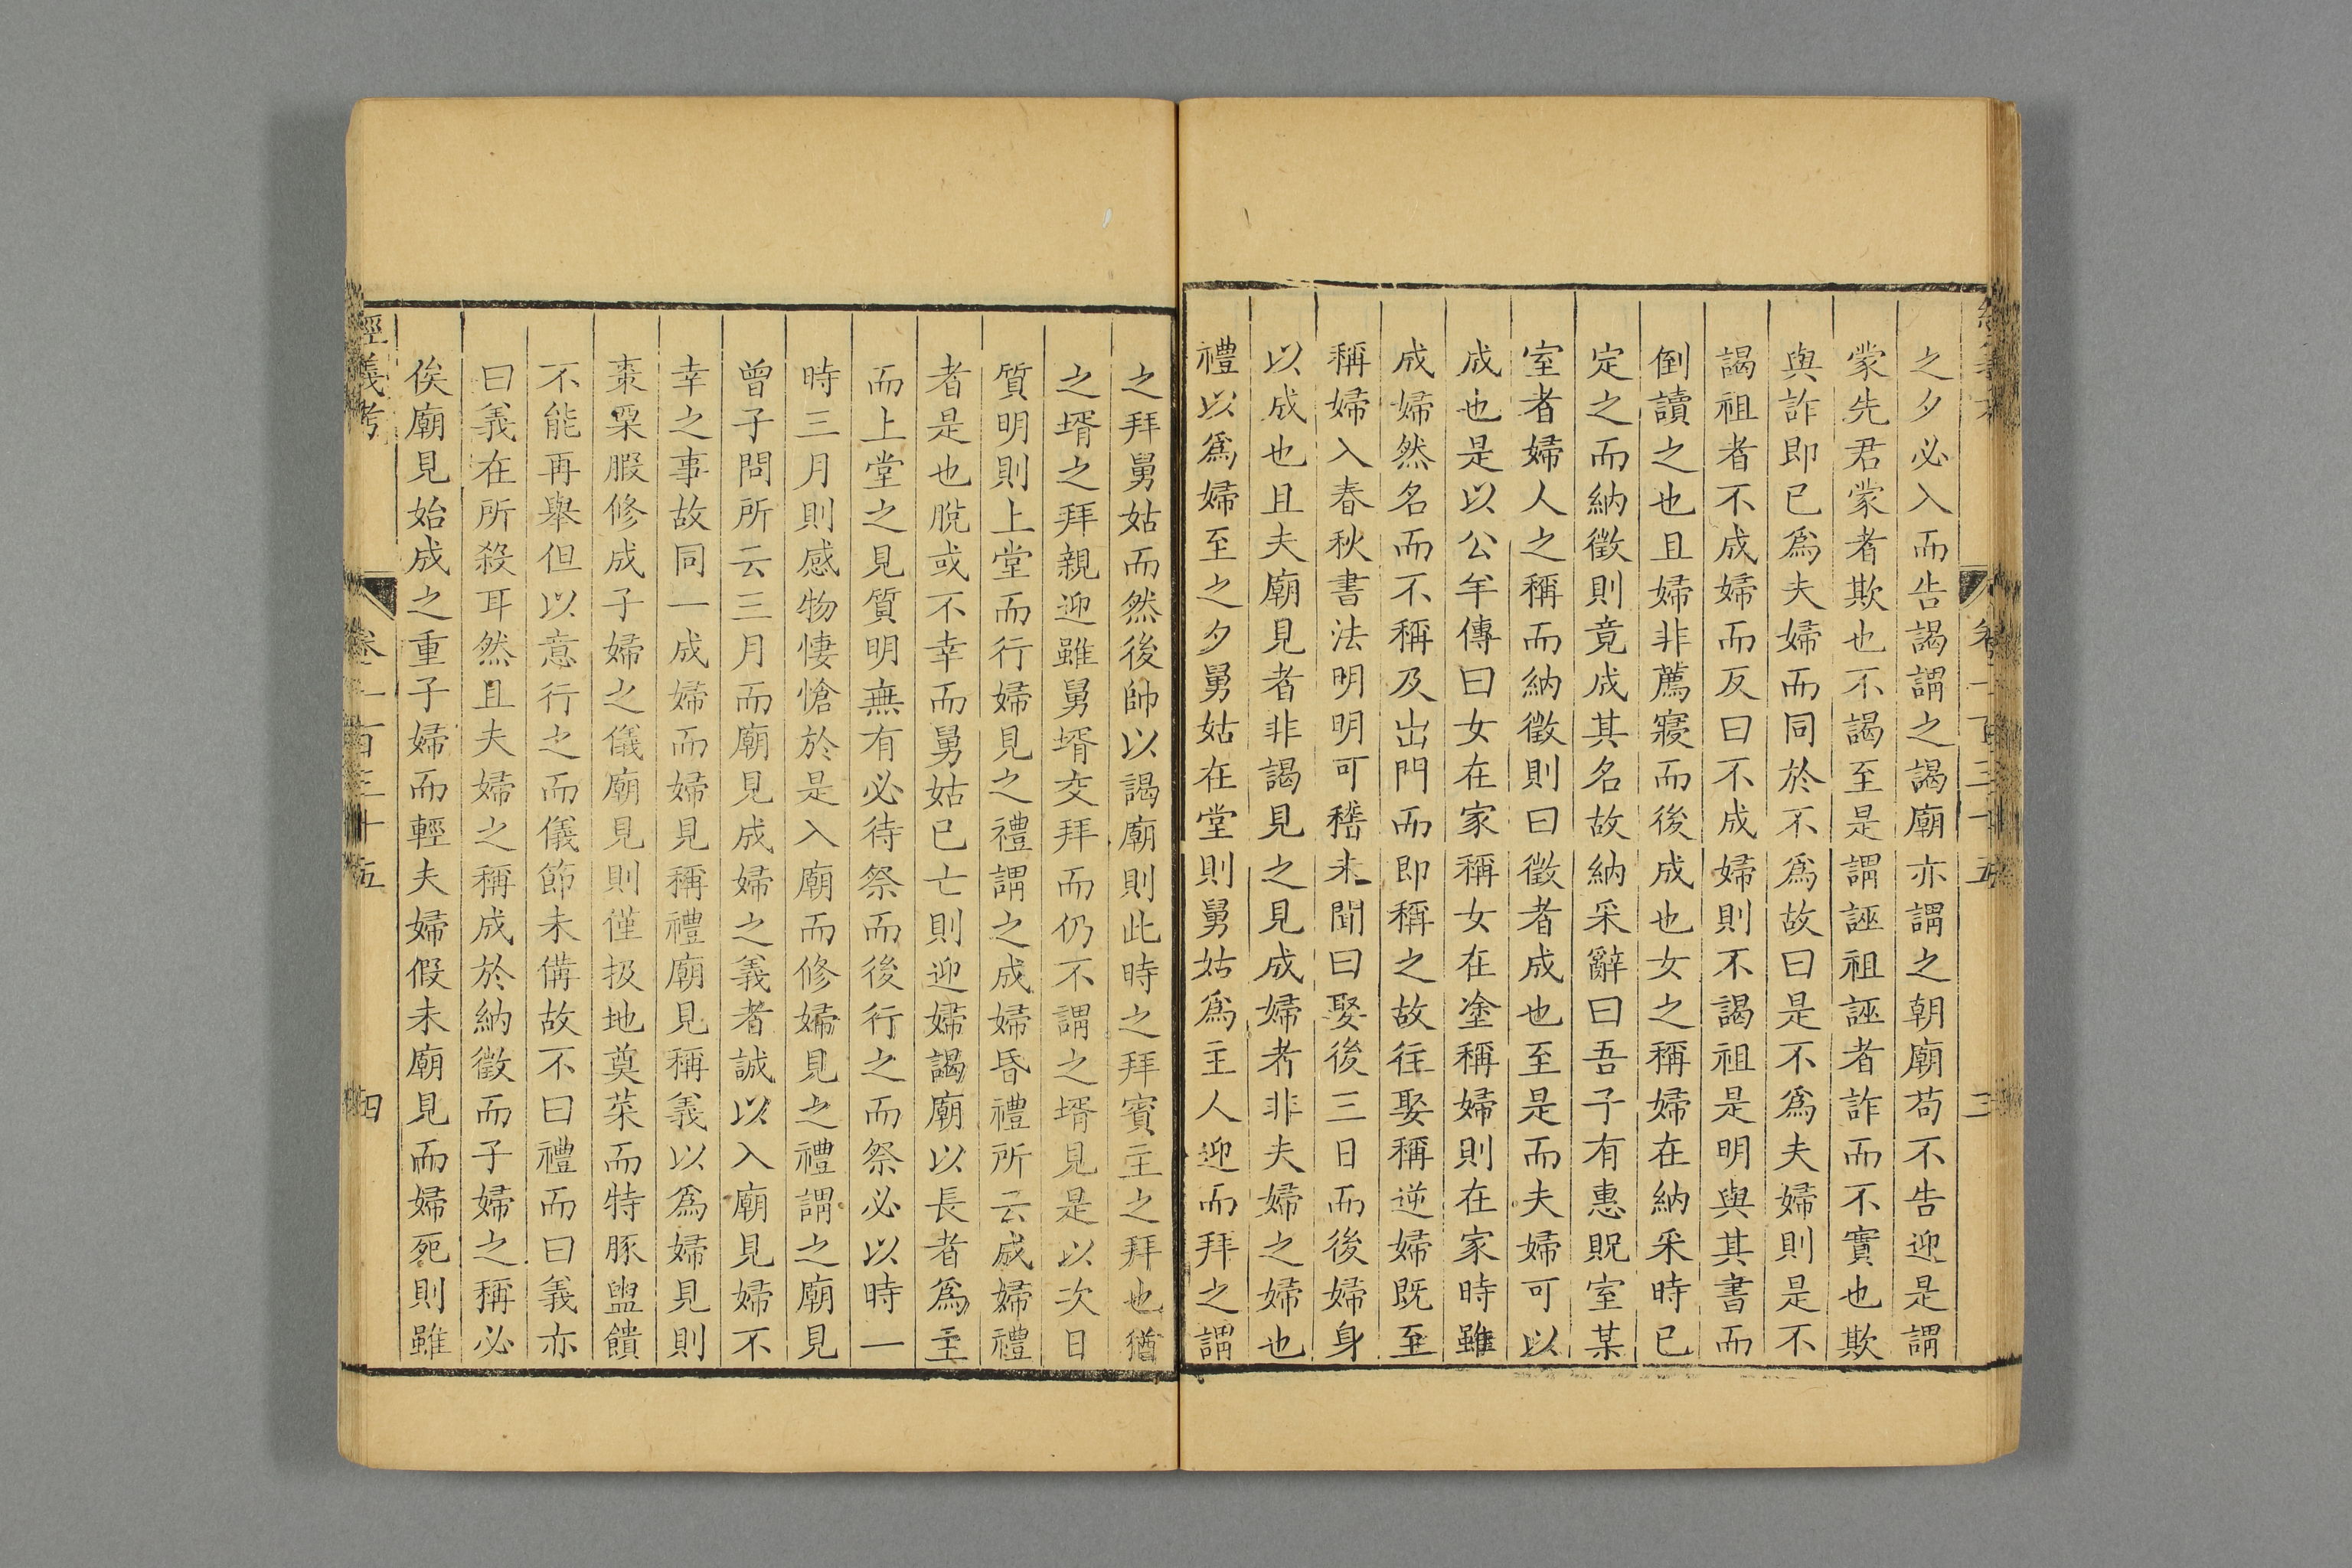 之夕必入而告謁謂之謁廟亦謂之朝廟苟不告迎是謂
蒙先君蒙者欺也不謁至是謂誣祖誣者詐而不實也欺
與詐即已爲夫婦而同於不爲故曰是不爲夫婦則是不
謁祖者不成婦而反曰不成婦則不謁祖是明與其書而
倒讀之也且婦非薦寢而後成也女之稱婦在納采時已
定之而納徵則竟成其名故納采辭曰吾子有惠貺室某
室者婦人之稱而納徵則曰徵者成也至是而夫婦可以
成也是以公羊傳曰女在家稱女在塗稱婦則在家時雖
成婦然名而不稱及出門而即稱之故往娶稱逆婦既至
稱婦入春秋書法明明可稽未聞曰娶後三日而後婦身
以成也且夫廟見者非謁見之見成婦者非夫婦之婦也
禮以爲婦至之夕舅姑在堂則舅姑爲主人迎而拜之謂
之拜舅姑而然後帥以謁廟則此時之拜賓主之拜也猶
之壻之拜親迎雖舅壻交拜而仍不謂之壻見是以次日
質明則上堂而行婦見之禮謂之成婦昏禮所云成婦禮
者是也脫或不幸而舅姑已亡則迎婦謁廟以長者爲主
而上堂之見質明無有必待祭而後行之而祭必以時一
時三月則感物悽愴於是入廟而修婦見之禮謂之廟見
曾子問所云三月而廟見成婦之義者誠以入廟見婦不
幸之事故同一成婦而婦見稱禮廟見稱義以爲婦見則
棗栗腶修成子婦之儀廟見則僅扱地奠菜而特豚盥饋
不能再舉但以意行之而儀節未備故不曰禮而曰義亦
曰義在所殺耳然且夫婦之稱成於納徵而子婦之稱必
俟廟見始成之重子婦而輕夫婦假未廟見而婦死則雖
經義考
卷一百三十五
四